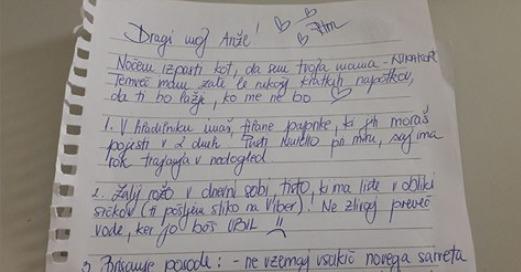 Dragi moj Anže!
7am
Nočem izpasti kot, da sem tvoja mama - NIKAKOR
Temveč imam zate le nekaj kratkih napotkov,
da ti bo lažje, ko me ne bo
1. V hladilniku imaš, filane paprike, ki jih moraš
pojesti v 2 dneh. Pusti Nutello pri miru, saj ima
rok trajanja v nedogled.
2. Zalij rožo v dnevni sobi, tisto, ki ma liste v obliki
srčkov (ti pošljem sliko na Viber)! Ne zlivaj preveč
vode, ker jo boš UBIL !!
3. Brisanje posode: - ne vzemaj vsakič novega